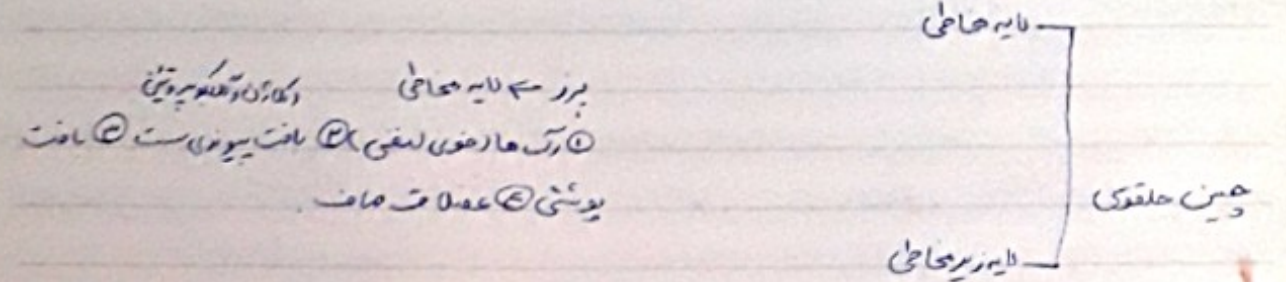 لایه مخاطی
پرز ← لایه مخاطی
(کلاژن و گلیکوپروتئین)
① رگ ها (خونی لنفی) ② بافت پیوندی سست ③ بافت
پوششی ④ عضلات صاف.
چین حلقوی
لایه زیرمخاطی